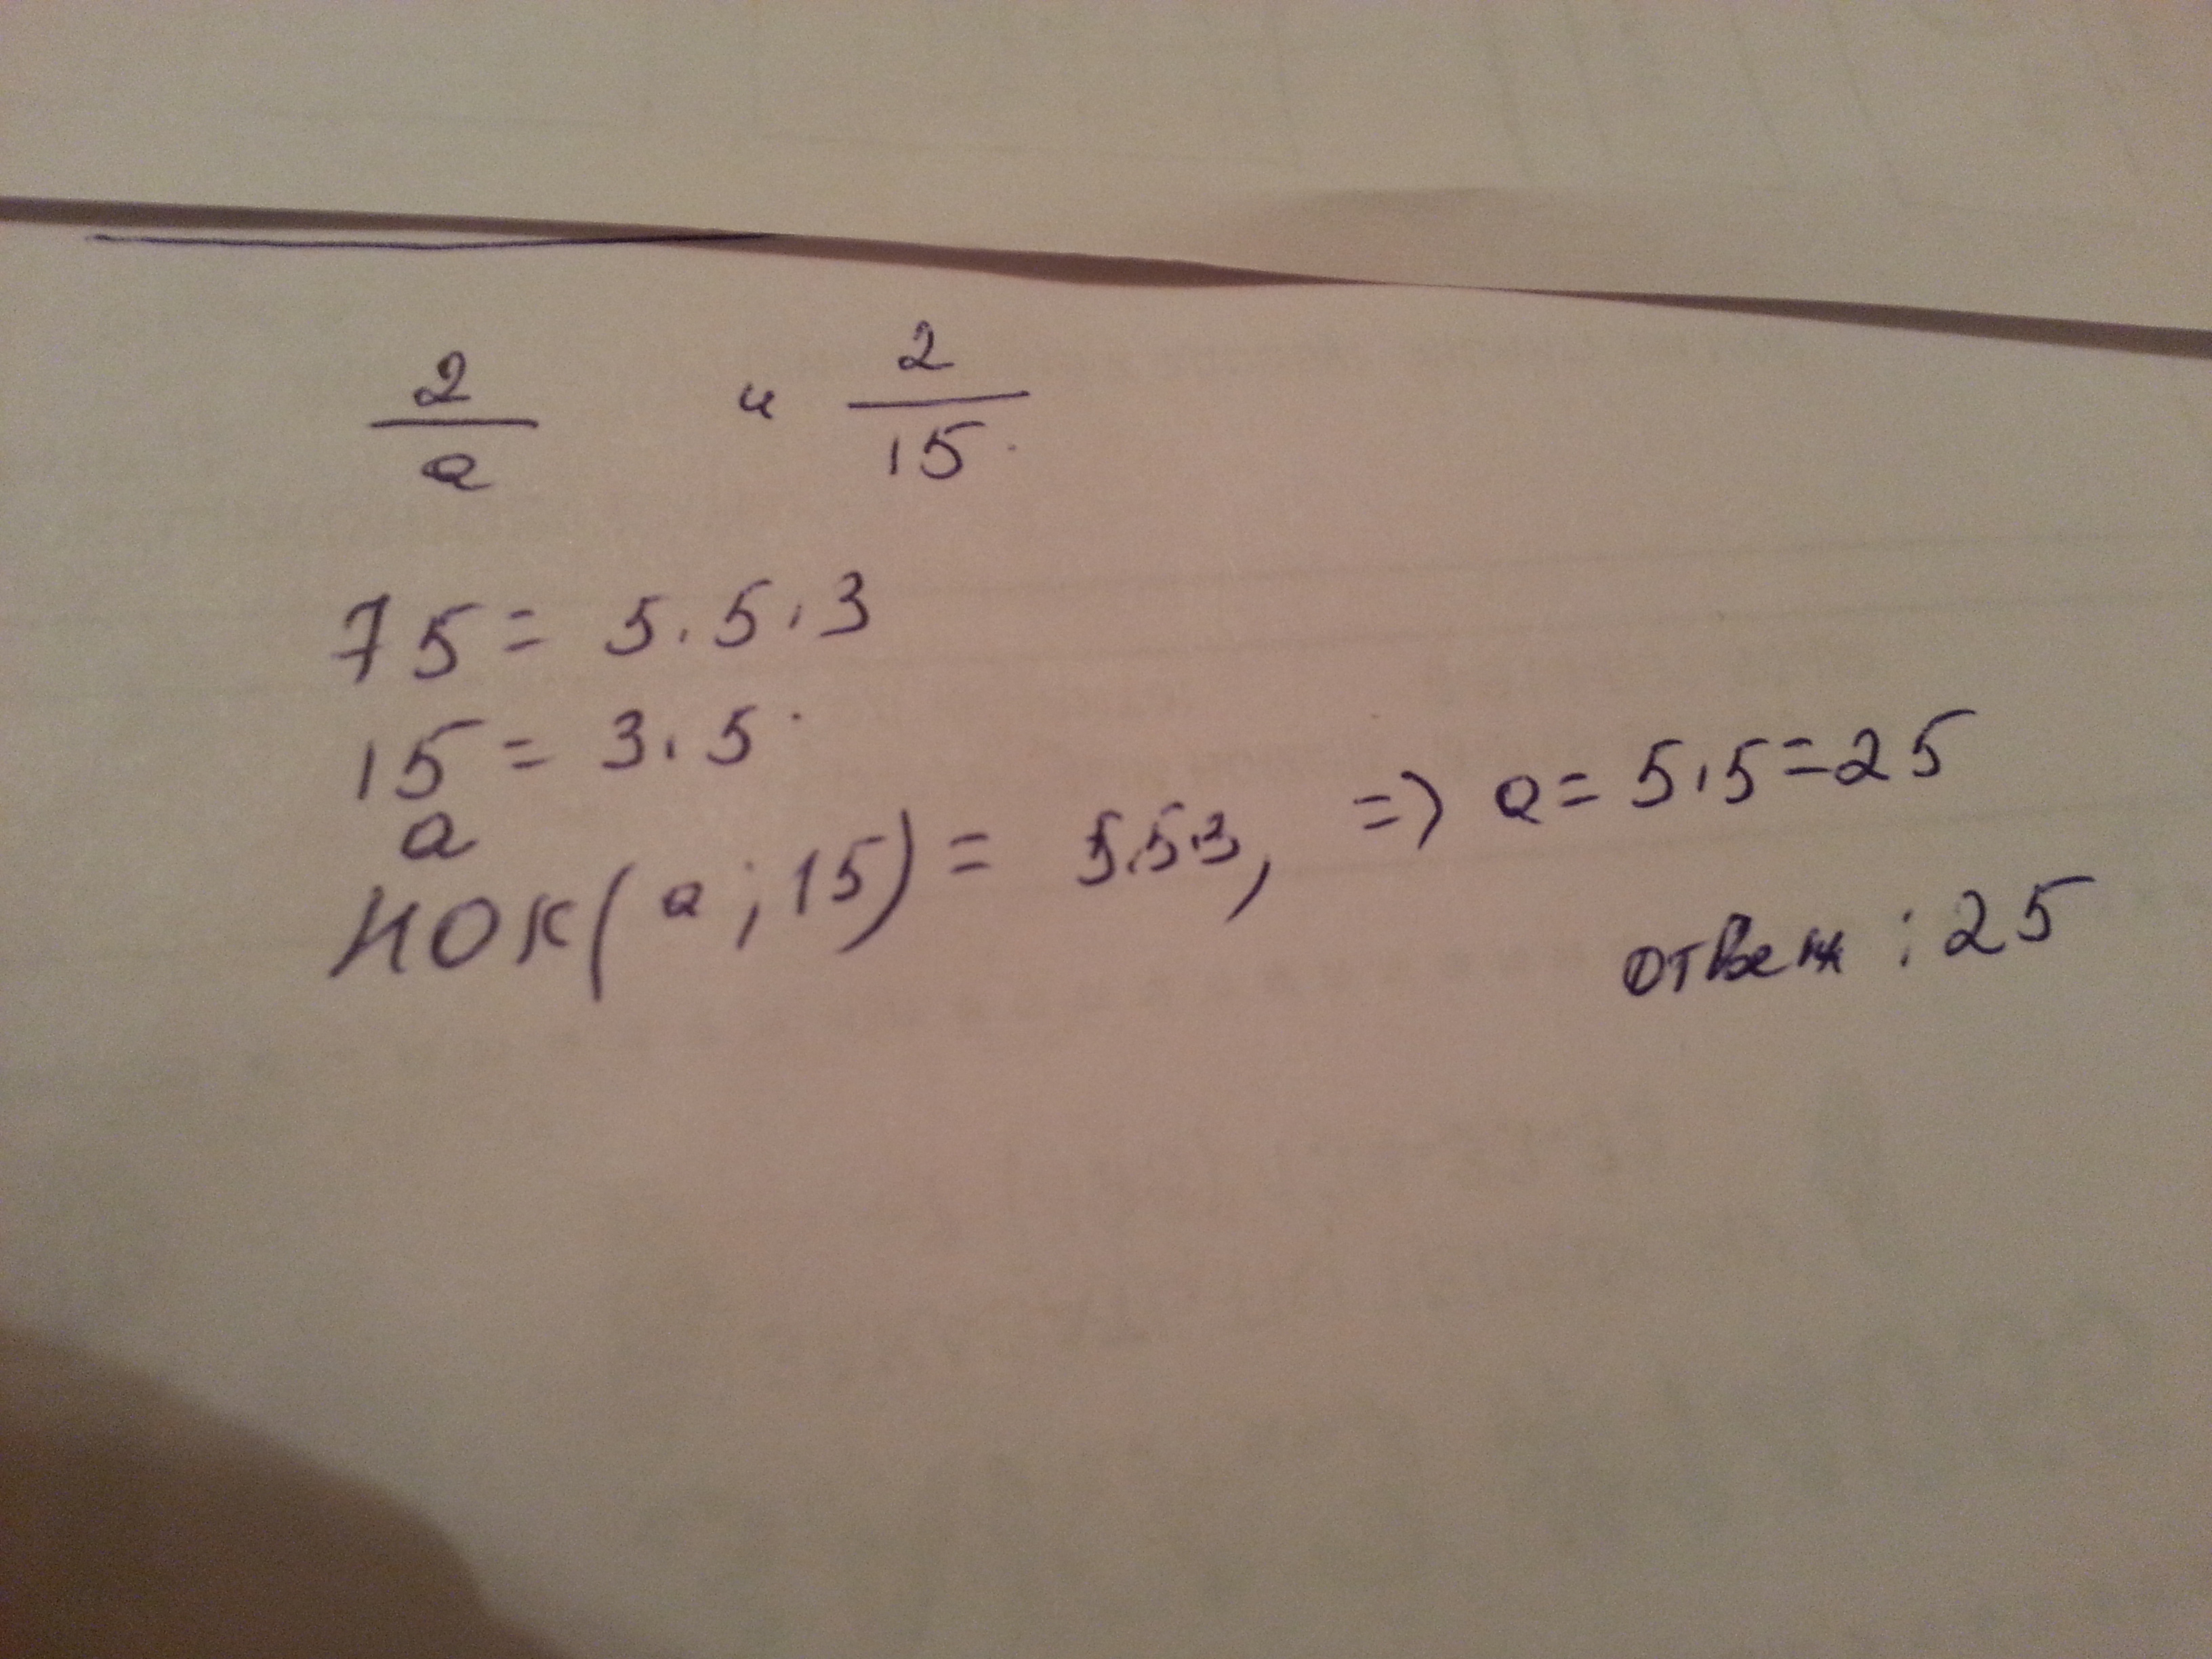 2/a и 2/15
75 = 5 · 5 · 3
15 = 3 · 5
a
НОК( a ; 15) = 5·5·3, => a = 5·5 = 25
ответ : 25